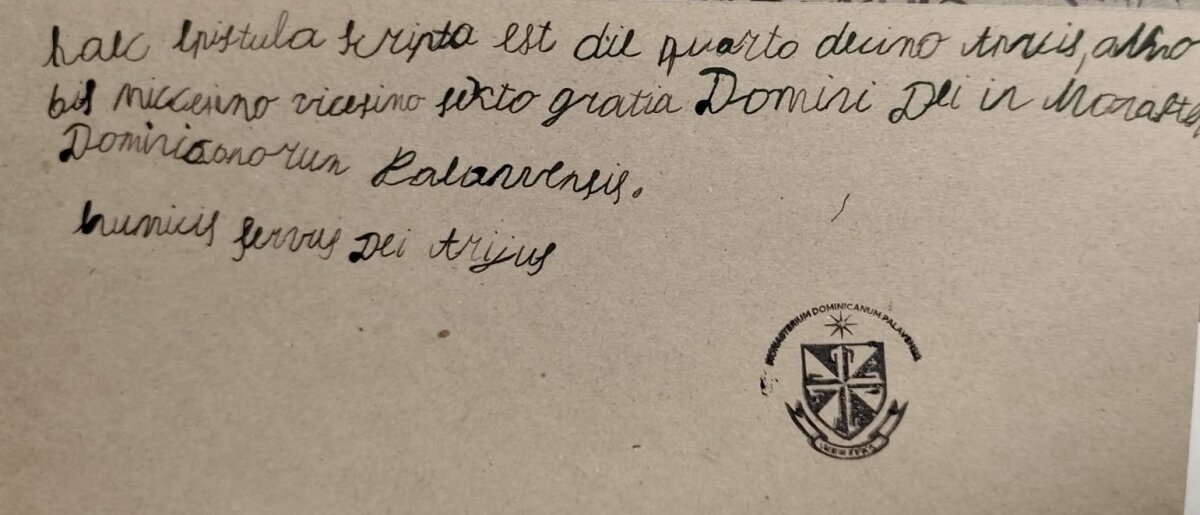 haec epistula scripta est die quarto decimo Aprilis, anno
bis millesimo vicesimo sexto gratia Domini Dei in Monaste
Dominicanorum Palavensis.
humilis servus Dei Arijus
MONASTERIUM DOMINICANUM PALAVENSE
VERITAS